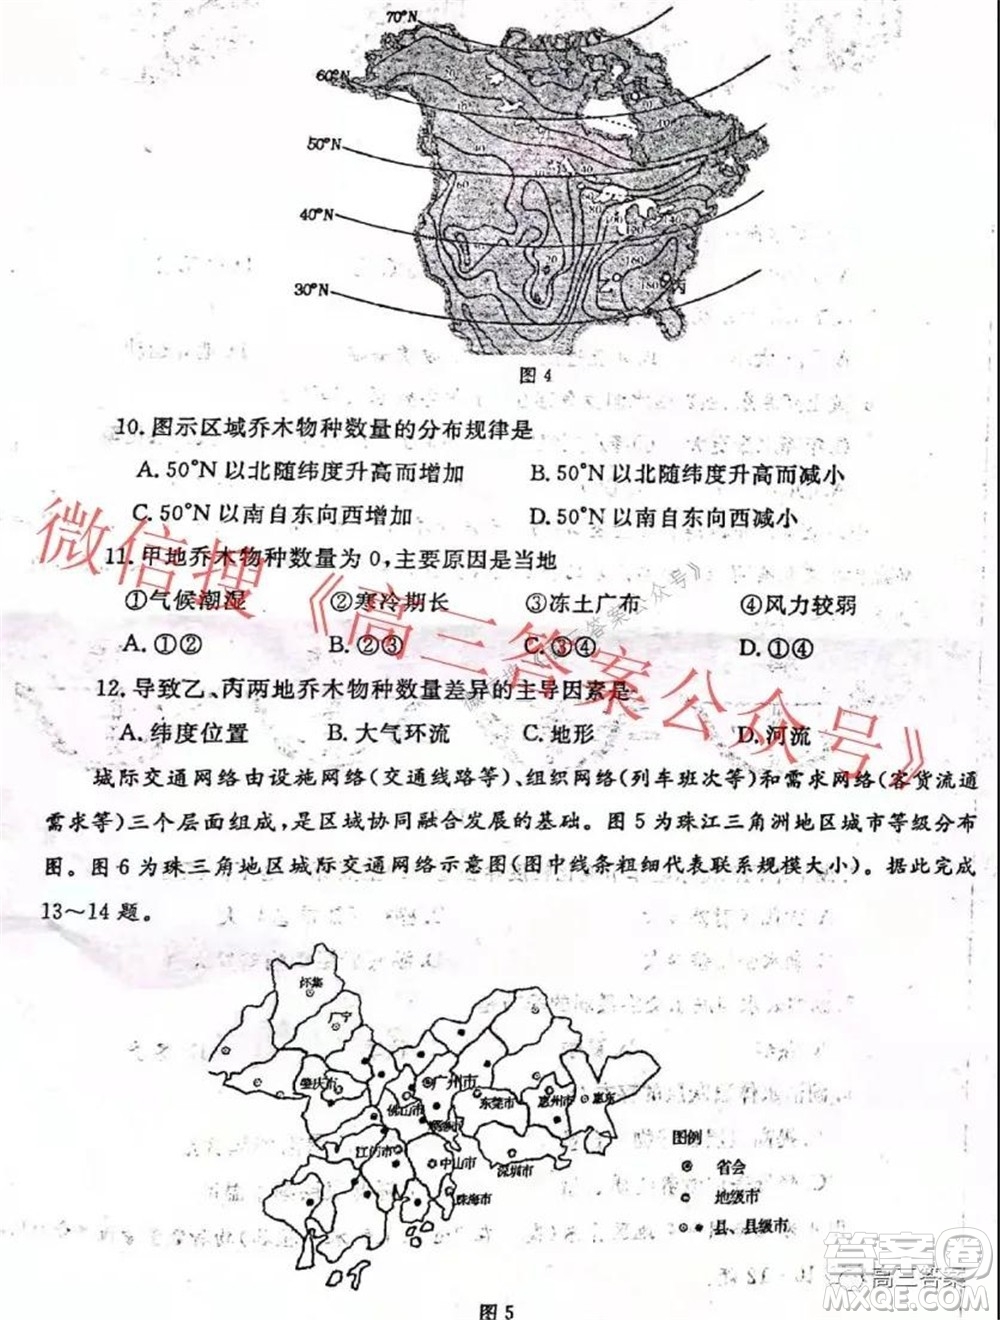 70°N
60°N
50°N
40°N
30°N
甲
乙
丙
图 4
10. 图示区域乔木物种数量的分布规律是
A. 50°N 以北随纬度升高而增加 B. 50°N 以北随纬度升高而减小
C. 50°N 以南自东向西增加 D. 50°N 以南自东向西减小
11. 甲地乔木物种数量为 0，主要原因是当地
①气候潮湿 ②寒冷期长 ③冻土广布 ④风力较弱
A. ①② B. ②③ C. ③④ D. ①④
12. 导致乙、丙两地乔木物种数量差异的主导因素是
A. 纬度位置 B. 大气环流 C. 地形 D. 河流
城际交通网络由设施网络(交通线路等)、组织网络(列车班次等)和需求网络(客货流通
需求等)三个层面组成，是区域协同融合发展的基础。图 5 为珠江三角洲地区城市等级分布
图。图 6 为珠三角地区城际交通网络示意图(图中线条粗细代表联系规模大小)。据此完成
13～14 题。
怀集
肇庆市
广州市
佛山市
东莞市
惠州市
惠东
江门市
中山市
深圳市
珠海市
图例
省会
地级市
县、县级市
图 5
微信搜《高三答案公众号》
答案卷
高三答案
MXQE.COM